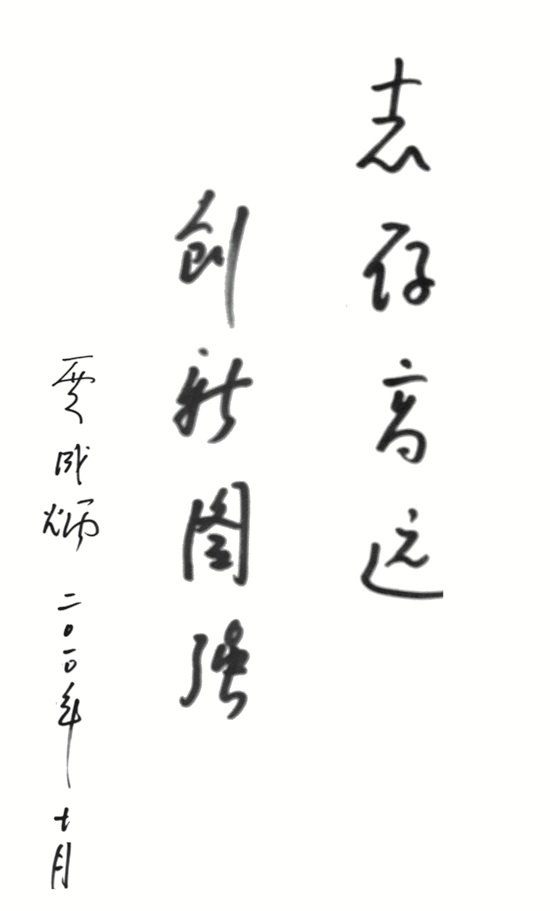 志存高远
创新图强
贾成炳 二〇一〇年十月